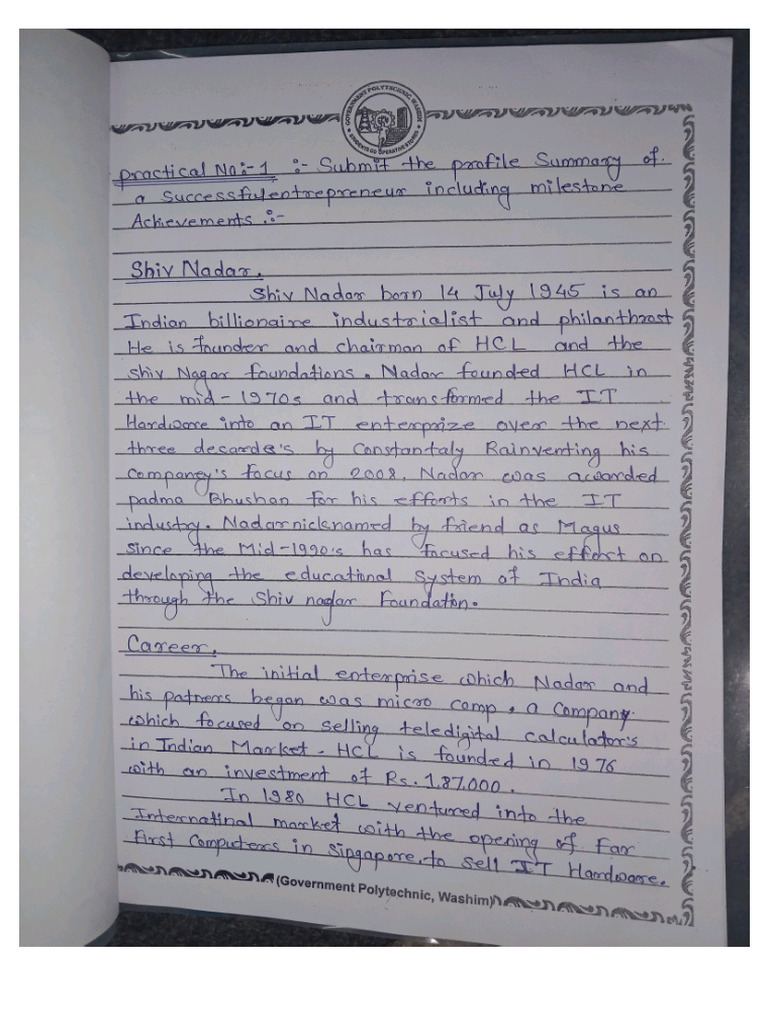 GOVERNMENT POLYTECHNIC, WASHIM
STUDENTS CO OPERATIVE STORES
practical No:-1 :- Submit the profile Summary of
a successful entrepreneur including milestone
Achievements :-
Shiv Nadar.
Shiv Nadar born 14 July 1945 is an
Indian billionaire industrialist and philanthrost
He is founder and chairman of HCL and the
Shiv Nagar foundations. Nadar founded HCL in
the mid-1970s and transformed the IT
Hardware into an IT enterprize over the next
three decarde's by Constantaly Rainventing his
Companey's focus on 2008. Nadar was awarded
padma Bhushan for his efforts in the IT
industry. Nadar nicknamed by friend as Magus
since the Mid-1990's has focused his effort on
developing the educatinal System of India
through the Shiv nagar Foundation.
Career.
The initial enterprise which Nadar and
his patners began was micro comp. a Company
which focused on selling teledigital calculator's
in Indian Market. HCL is founded in 1976
with an investment of Rs. 1,87,000.
In 1980 HCL ventured into the
Internatinal market with the opening of Far
First Computers in Singapore, to sell IT Hardware.
(Government Polytechnic, Washim)